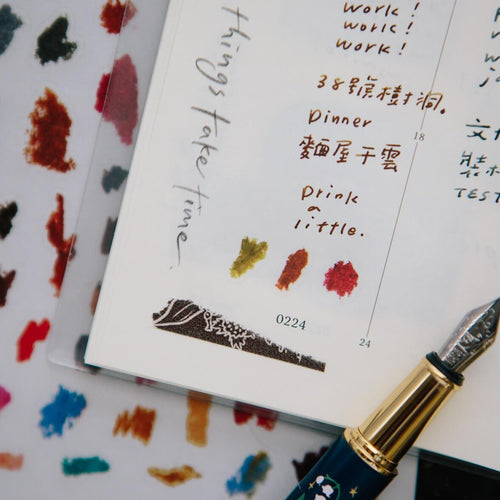 things take time.
work!
work!
work!
38號樹洞.
Dinner
麵屋千雲
Drink
a
little.
18
0224
24
文
TEST